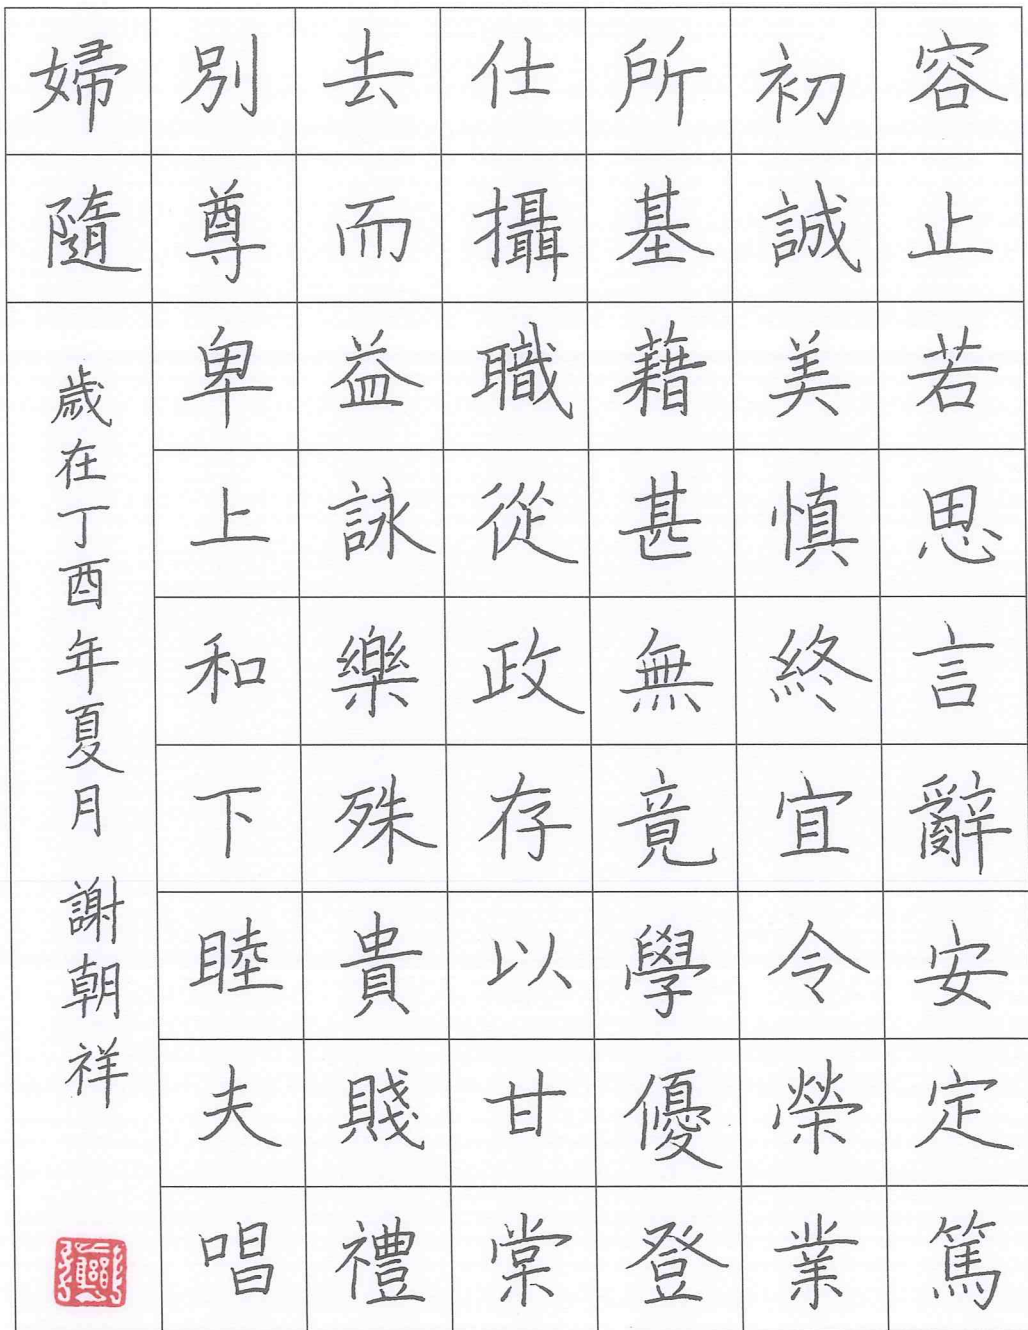 容止若思言辭安定篤
初誠美慎終宜令榮業
所基藉甚無竟學優登
仕攝職從政存以甘棠
去而益詠樂殊貴賤禮
別尊卑上和下睦夫唱
婦隨
歲在丁酉年夏月 謝朝祥